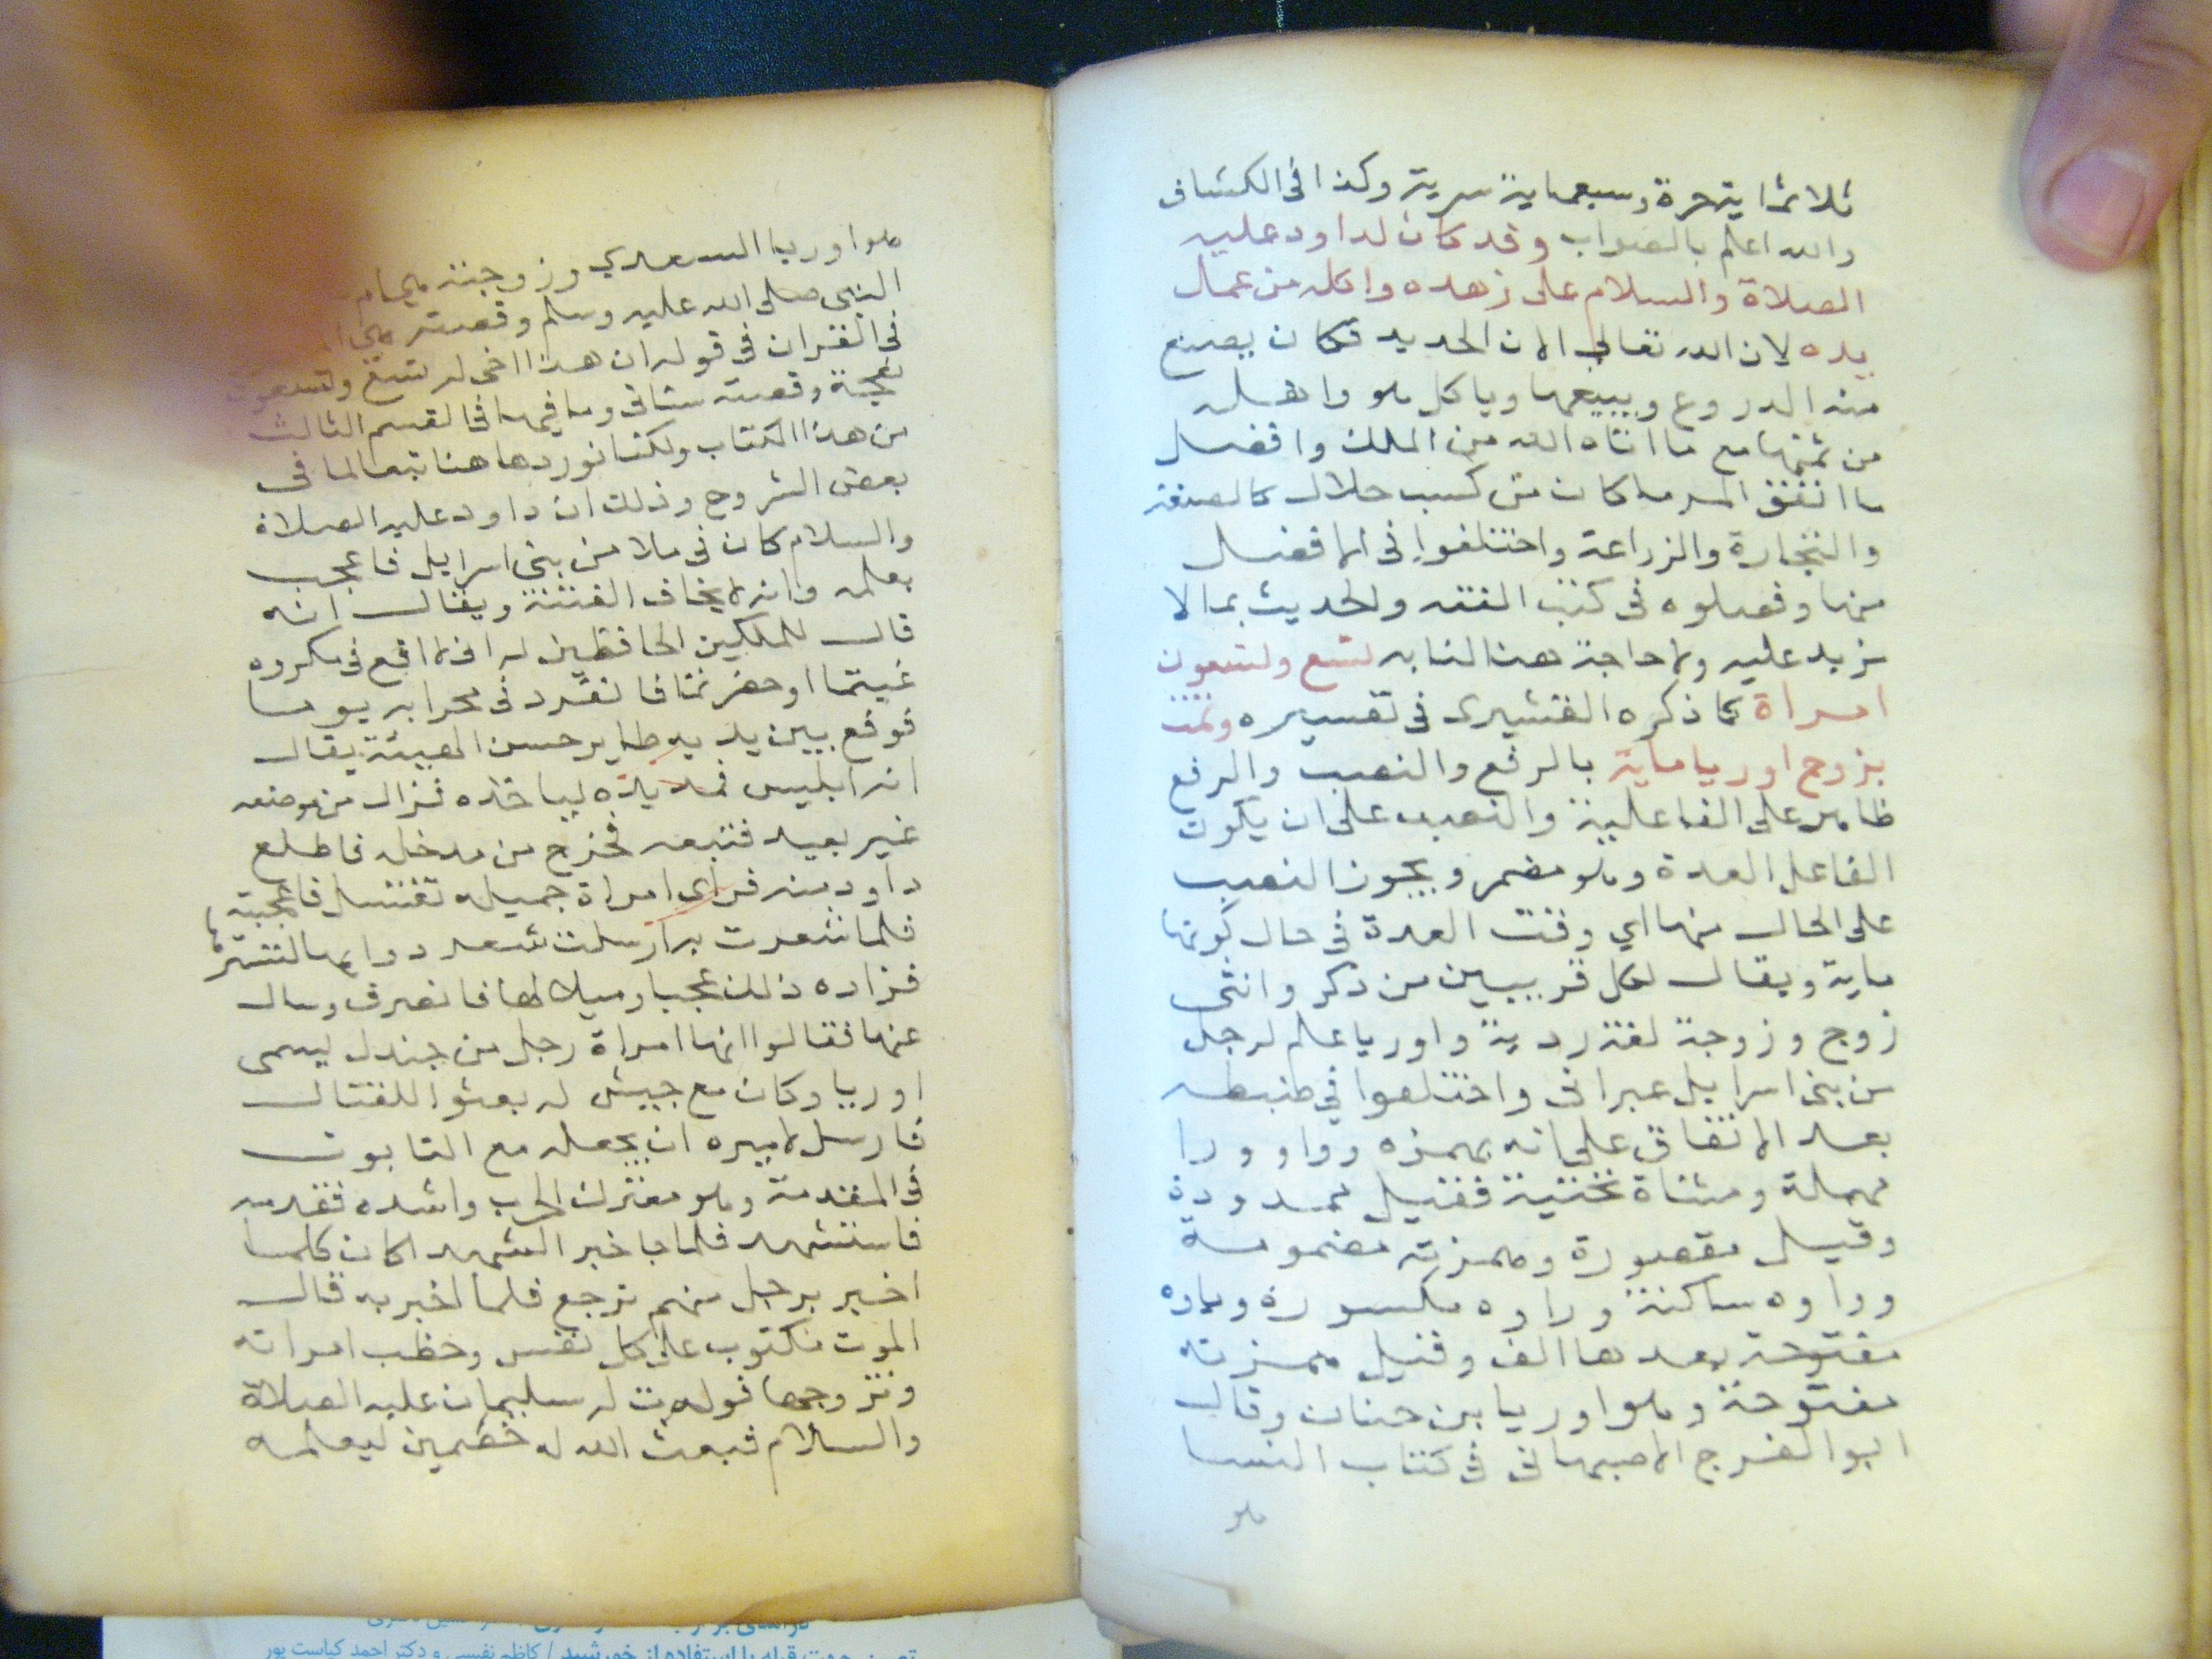 ثلاثماية حرة وسبعماية سرية وكذا فى الكشاف
والله اعلم بالصواب وقد كان لداود عليه
الصلاة والسلام على زهده واكله من عمل
يده لان الله تعالى الان الحديد فكان يصنع
منه الدروع ويبيعها وياكل هو واهله
من ثمنها مع ما اتاه الله من الملك وافضل
ما انفق المرء ما كان من كسب حلال كالصنعة
والتجارة والزراعة واختلفوا فى الافضل
منها وفصلوه فى كتب الفقه والحديث بما لا
مزيد عليه ولا حاجة هنا لنا به تسع وتسعون
امراة كما ذكره القشيرى فى تفسيره وتمت
بزوج اوريا ماية بالرفع والنصب والرفع
ظاهر على الفاعلية والنصب على ان يكون
الفاعل العدة وهو مضمر ويجوز النصب
على الحال منها اي وفت العدة فى حال كونها
ماية ويقال لكل قريبين من ذكر وانثى
زوج وزوجة لغة ردية واوريا علم لرجل
من بنى اسرايل عبرانى واختلفوا في ضبطه
بعد الاتفاق على انه بهمزه وواو ورا
مهملة ومثناة تحتية فقيل ممدودة
وقيل مقصورة وهمزته مضمومة
وواوه ساكنة وراوه مكسورة وياوه
مفتوحة بعدها الف وقيل همزته
مفتوحة وهو اوريا بن حنان وقال
ابو الفرج الاصبهانى فى كتاب النسا
هو
هو اوريا السعدي وزوجته
النبى صلى الله عليه وسلم وقصته
فى القران فى قوله ان هذا اخى له تسع وتسعون
نعجة وقصته ستاتى وما فيها فى القسم الثالث
من هذا الكتاب ولكنا نوردها هنا تبعا لما فى
بعض الشروح وذلك ان داود عليه الصلاة
والسلام كان فى ملا من بنى اسرايل فاعجب
بعلمه وانه لا يخاف الفتنة ويقال انه
قال للملكين الحافظين له انى لا اقع فى مكروه
غبتما او حضرتما فانفرد فى محرابه يوما
فوقع بين يديه طاير حسن الهيئة يقال
انه ابليس فمد يده لياخذه فزال من موضعه
غير بعيد فتبعه فخرج من مدخله فاطلع
داود منه فراى امراة جميله تغتسل فاعجبته
فلما شعرت به ارسلت شعر دوابها لتستترها
فزاده ذلك عجبا وميلا لها فانصرف وسال
عنها فقالوا انها امراة رجل من جندك يسمى
اوريا وكان مع جيش له بعثوا للقتال
فارسل لاميره ان يجعله مع التابوت
فى المقدمة وهو معترك الحرب واشده فقدمه
فاستشهد فلما جا خبر الشهدا كان كلما
اخبر برجل منهم ترجع فلما اخبر به قال
الموت مكتوب على كل نفس وخطب امراته
وتزوجها فولدت له سليمان عليه الصلاة
والسلام فبعث الله له خصمين ليعلمه
تعیین جهت قبله با استفاده از خورشید / کاظم نفیسی و دکتر احمد کیاست پور